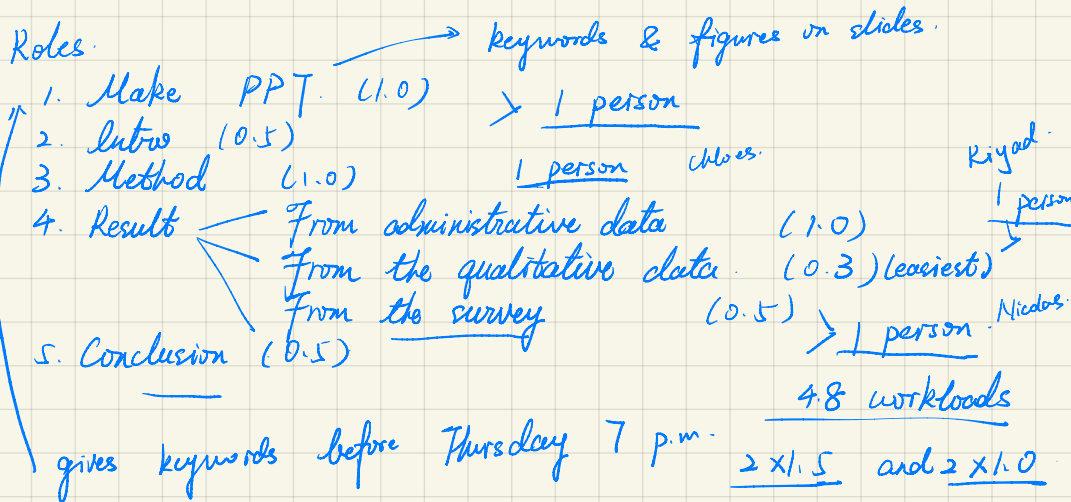 Roles.
keywords & figures on slides.
1. Make PPT. (1.0)
> 1 person
2. Intro (0.5)
3. Method (1.0)
1 person Chloes.
Riyad.
1 person
4. Result
From administrative data (1.0)
From the qualitative data. (0.3) (easiest)
From the survey (0.5)
> 1 person. Nicolas.
5. Conclusion (0.5)
4.8 workloads
gives keywords before Thursday 7 p.m.
2 x 1.5 and 2 x 1.0